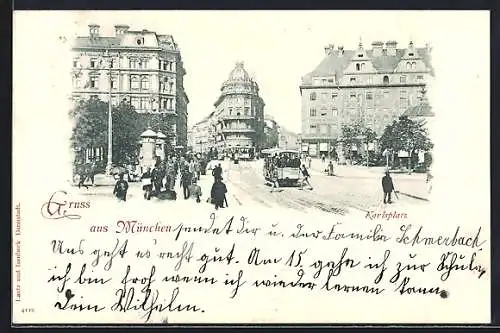 Gruss
aus München
Karlsplatz
sendet Dir u. der Familie Schmerbach
Uns geht es recht gut. Am 15 gehe ich zur Schule,
ich bin froh wenn ich wieder lernen kann
Dein Wilhelm.
Lautz und Isenbeck Darmstadt.